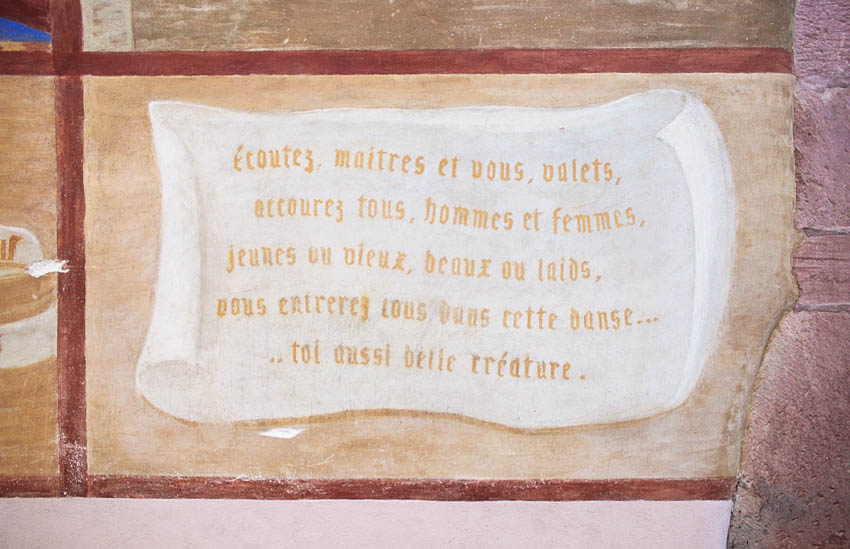 écoutez, maitres et vous, valets,
accourez tous, hommes et femmes,
jeunes ou vieux, beaux ou laids,
vous entrerez tous dans cette danse...
..toi aussi belle créature.